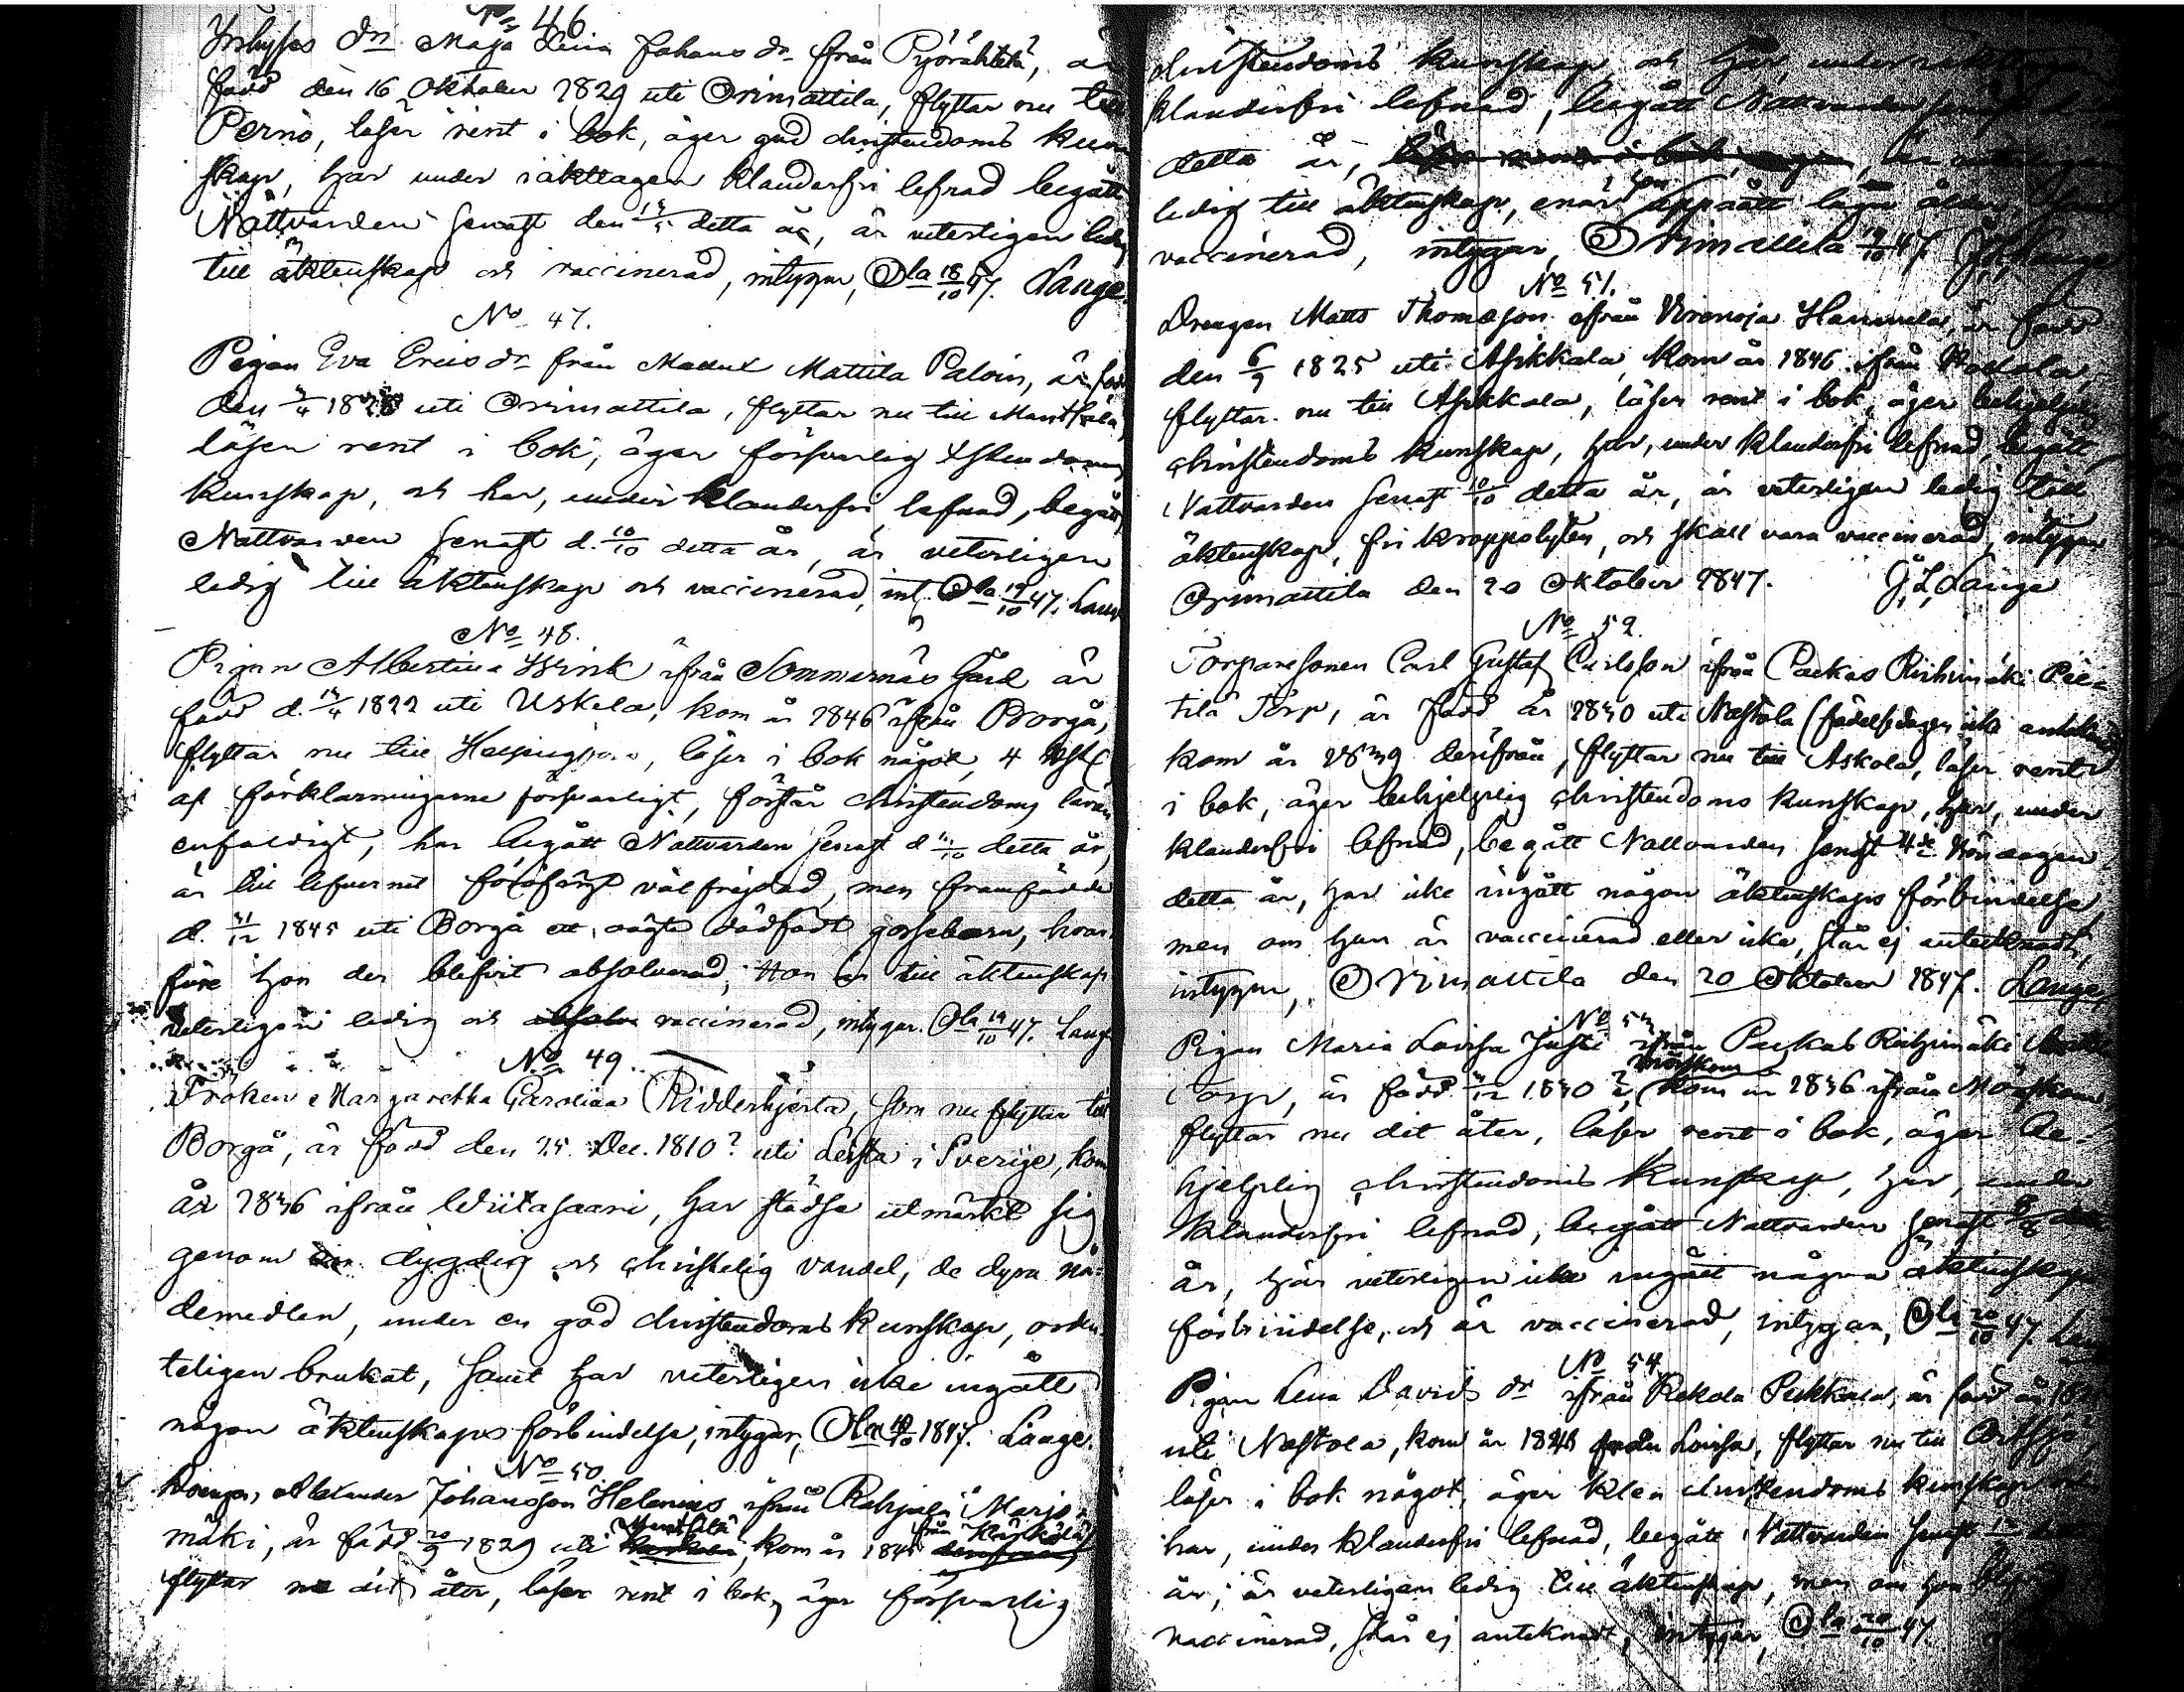 No 46
dr. Maja Lena Johans dr från Pyörähtelä, är
född den 16 Oktober 1829 uti Orimattila, flyttar nu till
Perno, läser rent i bok, äger god christendoms kun
skap, har under iakttagen klanderfri lefnad begått
Nattvarden senast den detta år, är veterligen ledig
till äktenskap och vaccinerad, intygar, Ola 18/10 47. Lange.
No 47.
Pigan Eva Erics dr från Mattila Palvin, är född
den uti Orimattila, flyttar nu till Mäntsälä,
läser rent i bok, äger försvarlig Xstendoms
kunskap, och har, under klanderfri lefnad, begått
Nattvarden senast d. 10/10 detta år, är veterligen
ledig till äktenskap och vaccinerad, int. Ola 19/10 47. Lange
No 48.
Pigan Albertina ifrån Sommarnäs Gård är
född d. 1822 uti Uskela, kom år 1846 ifrån Borgå,
flyttar nu till Helsingfors, läser i bok något, 4
af förklarningarne försvarligt, förstår christendoms läran
enfaldigt, har begått Nattvarden senast d detta år,
är till lefvernet väl frejdad, men framfödde
d. 1845 uti Borgå ett oägta dödfödt gossebarn, hvar
före hon der blifvit absolverad, Hon är till äktenskap
veterligen ledig och vaccinerad, intygar. Ola 19/10 47. Lange
No 49.
Fröken Margaretha Carolina Ridderhjerta, som nu flyttar till
Borgå, är född den 25 Dec. 1810? uti i Sverige, kom
år 1836 ifrån Wiitasaari, har städse utmärkt sig
genom dygdig och christelig vandel, de dyra nå-
demedlen, under en god christendoms kunskap, orden
teligen brukat, samt har veterligen icke ingått
någon äktenskaps förbindelse, intygar, Ola 1847. Lange.
No 50
Drengen Alexander Johansson Helenius ifrån Merjo-
mäki, är född 20/9 1829 uti Mäntsälä, kom år 1845 från Kärkölä
flyttar nu dit åter, läser rent i bok, äger försvarlig
christendoms kunskap och har, under iakttagen
klanderfri lefnad, begått Nattvarden senast
detta år, är
ledig till äktenskap, enär han uppnått laga ålder, samt
vaccinerad, intygar, Orimattila 19/10 47. G L Lange
No 51.
Drengen Matts Thomasson ifrån Virenoja Hannula, är född
den 6/9 1825 uti Asikkala, kom år 1846 ifrån
flyttar nu till Asikkala, läser rent i bok, äger behjelplig
christendoms kunskap, har, under klanderfri lefnad, begått
Nattvarden senast 10/10 detta år, är veterligen ledig till
äktenskap, fri kroppslyten, och skall vara vaccinerad, intygar
Orimattila den 20 Oktober 1847. G, L, Lange
No 52.
Torparesonen Carl Gustaf Carlsson ifrån Packas Riihimäki
Torp, är född år 1830 uti Nastola (födelsedagen icke antecknad)
kom år 1839 derifrån, flyttar nu till Askola, läser rent
i bok, äger behjelplig christendoms kunskap, har, under
klanderfri lefnad, begått Nattvarden senast 4de Böndagen
detta år, har icke ingått någon äktenskaps förbindelse,
men om han är vaccinerad eller icke, står ej antecknadt,
intygar, Orimattila den 20 Oktober 1847. Lange,
No 53
Pigan Maria Lovisa ifrån Packas Riihimäki
Torp, är född 1830 i Mörskom kom år 1836 ifrån Mörskom
flyttar nu dit åter, läser rent i bok, äger be-
hjelplig christendoms kunskap, har, under
klanderfri lefnad, begått Nattvarden senast
år, har veterligen icke ingått några äktenskaps
förbindelse, och är vaccinerad, intygar, Ola 20/10 47 Lange
No 54
Pigan Lena Davids dr ifrån Rekola Pekkala, är född år
uti Nastola, kom år från Lovisa, flyttar nu till Artsjö,
läser i bok något, äger klen christendoms kunskap och
har, under klanderfri lefnad, begått Nattvarden senast
år, är veterligen ledig till äktenskap, men om hon blifvit
vaccinerad, står ej anteknadt, intygar, Ola 20/10 47.